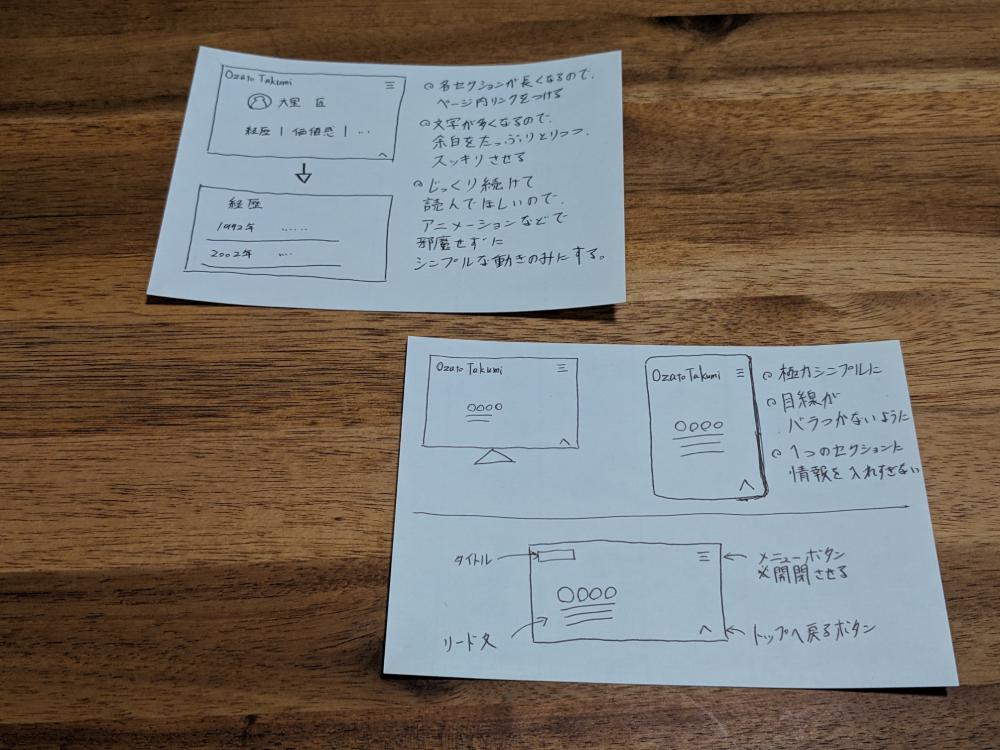 Ozato Takumi
大里 匠
経歴 | 価値感 | …
経歴
1992年 ……
2002年 …
各セクションが長くなるので、
ページ内リンクをつける
文字が多くなるので、
余白をたっぷりとりつつ、
スッキリさせる
じっくり続けて
読んでほしいので、
アニメーションなどで
邪魔せずに
シンプルな動きのみにする。
Ozato Takumi
○○○○
Ozato Takumi
○○○○
極力シンプルに
目線が
バラつかないように
1つのセクションに
情報を入れすぎない
タイトル
○○○○
リード文
メニューボタン
※開閉させる
トップへ戻るボタン